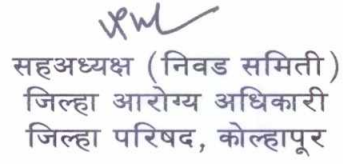 सहअध्यक्ष (निवड समिती)
जिल्हा आरोग्य अधिकारी
जिल्हा परिषद, कोल्हापूर